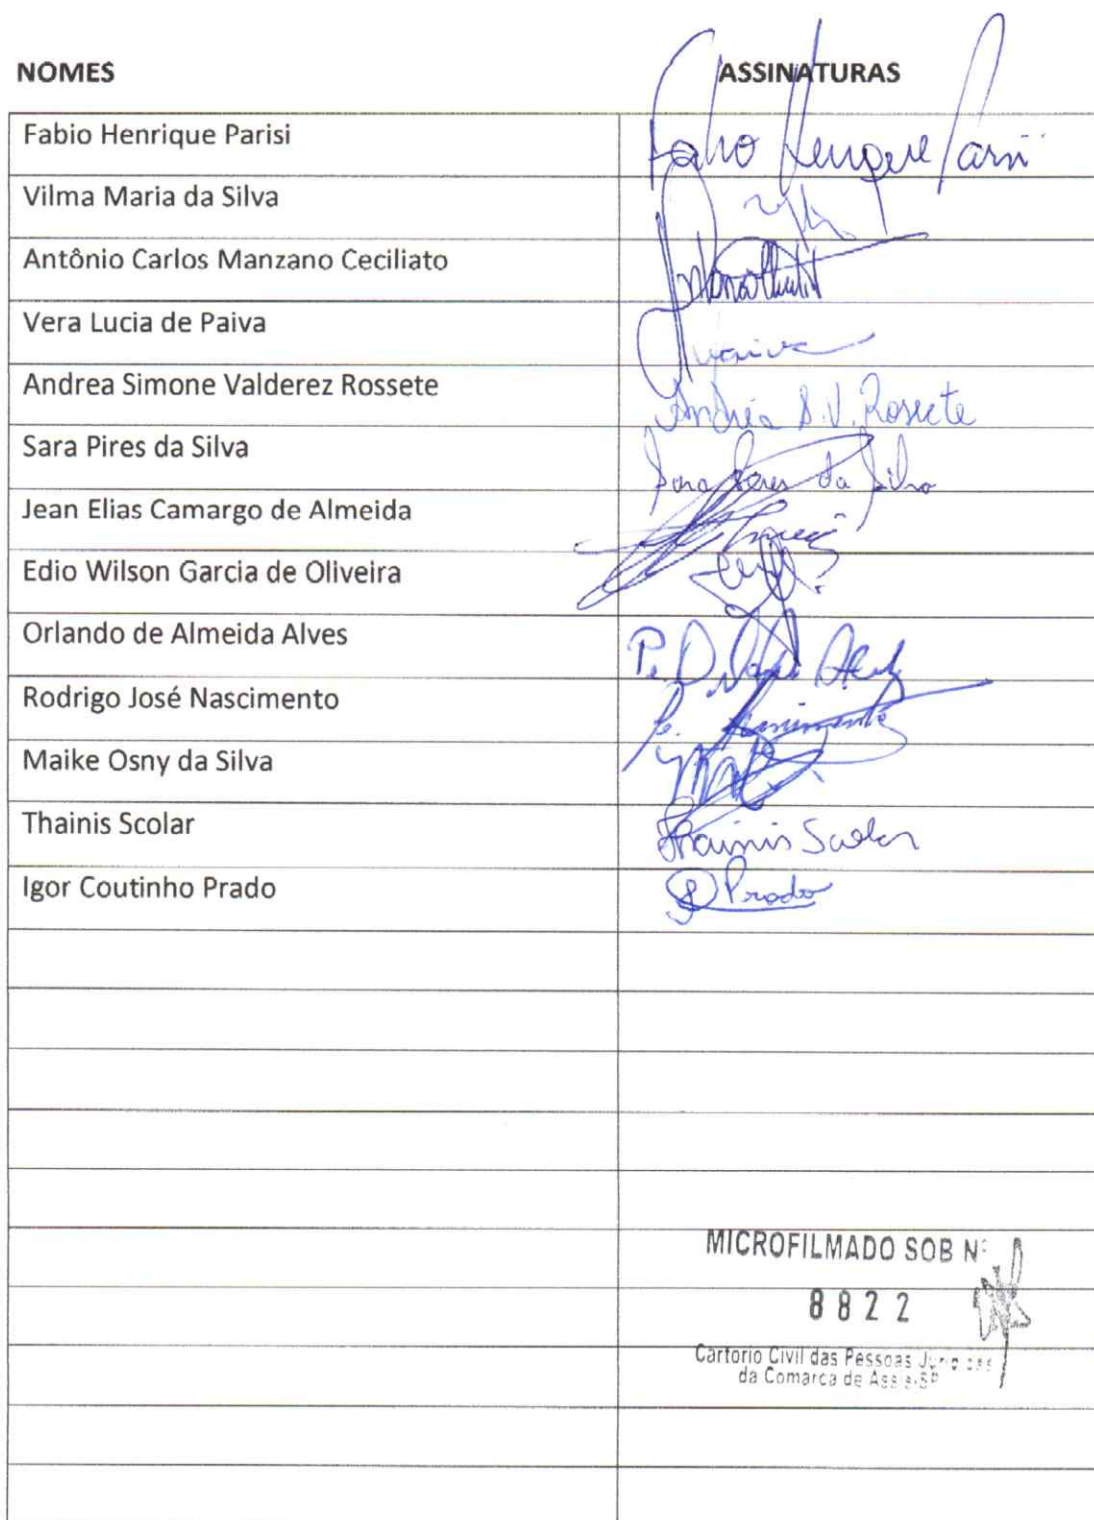 NOMES ASSINATURAS
Fabio Henrique Parisi Fabio Henrique Parisi
Vilma Maria da Silva
Antônio Carlos Manzano Ceciliato
Vera Lucia de Paiva
Andrea Simone Valderez Rossete Andréa S. V. Rossete
Sara Pires da Silva Sara Pires da Silva
Jean Elias Camargo de Almeida
Edio Wilson Garcia de Oliveira
Orlando de Almeida Alves Pe. Orlando Alves
Rodrigo José Nascimento Pe. Nascimento
Maike Osny da Silva
Thainis Scolar Thainis Scolar
Igor Coutinho Prado Prado
MICROFILMADO SOB Nº
8822
Cartorio Civil das Pessoas Juridicas
da Comarca de Assis-SP